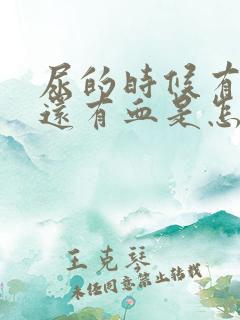 尿的時候有
還有血是怎
王克琴
未经同意禁止转载